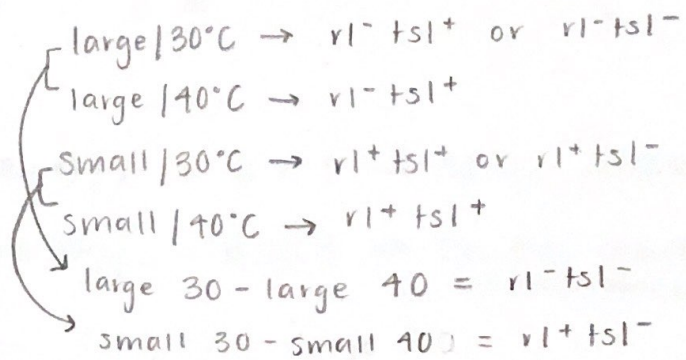 large/30°C → rl⁻ tsl⁺ or rl⁻ tsl⁻
large/40°C → rl⁻ tsl⁺
small/30°C → rl⁺ tsl⁺ or rl⁺ tsl⁻
small/40°C → rl⁺ tsl⁺
large 30 - large 40 = rl⁻ tsl⁻
small 30 - small 40 = rl⁺ tsl⁻